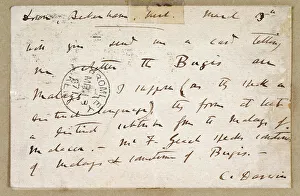 Down, Beckenham, Kent. March 3rd
Will you send me a card telling
me whether the Bugis are
Malays. I suppose (as they speak a
distinct language) they form at least
a distinct from the Malays of
Malacca — Mr F. Geach speaks
of Malays & of Bugis.
C. Darwin
BROMLEY
KENT